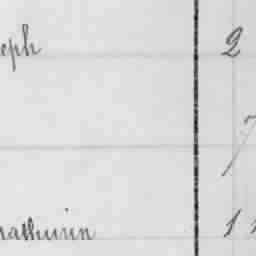 eph 2
7
athurin 1